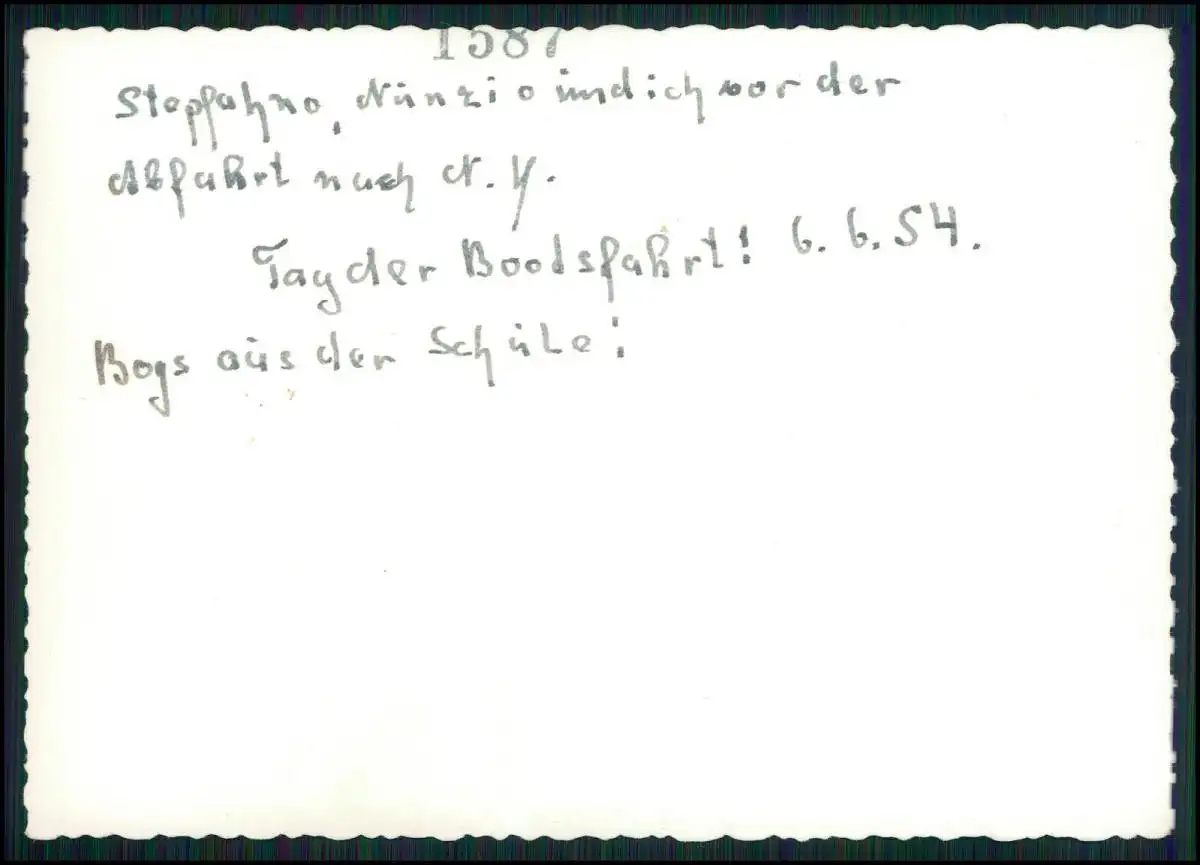 1587
Stepfahno, Nunzio und ich vor der
Abfahrt nach N. Y.
Tag der Bootsfahrt! 6. 6. 54.
Boys aus der Schule!